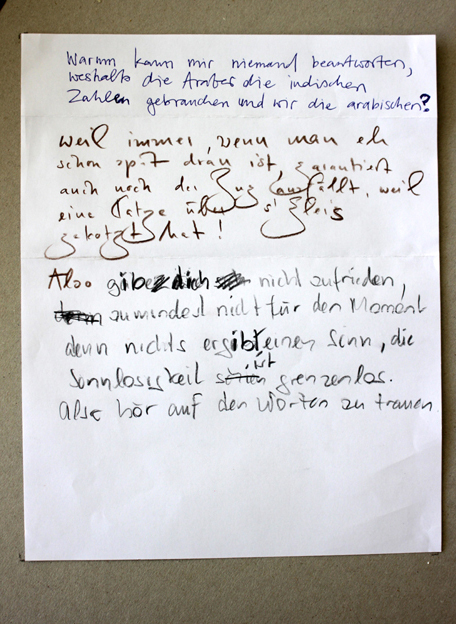 Warum kann mir niemand beantworten,
weshalb die Araber die indischen
Zahlen gebrauchen und wir die arabischen?
weil immer, wenn man eh
schon spät dran ist, garantiert
auch noch der Zug ausfällt, weil
eine Katze über s' Gleis
gekotzt hat!
Also gib dich nicht zufrieden,
zumindest nicht für den Moment
denn nichts ergibt einen Sinn, die
Sinnlosigkeit ist grenzenlos.
also hör auf den Worten zu trauen